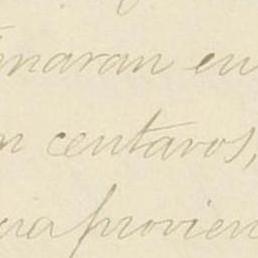 enaran en
n centavos,
ura provien